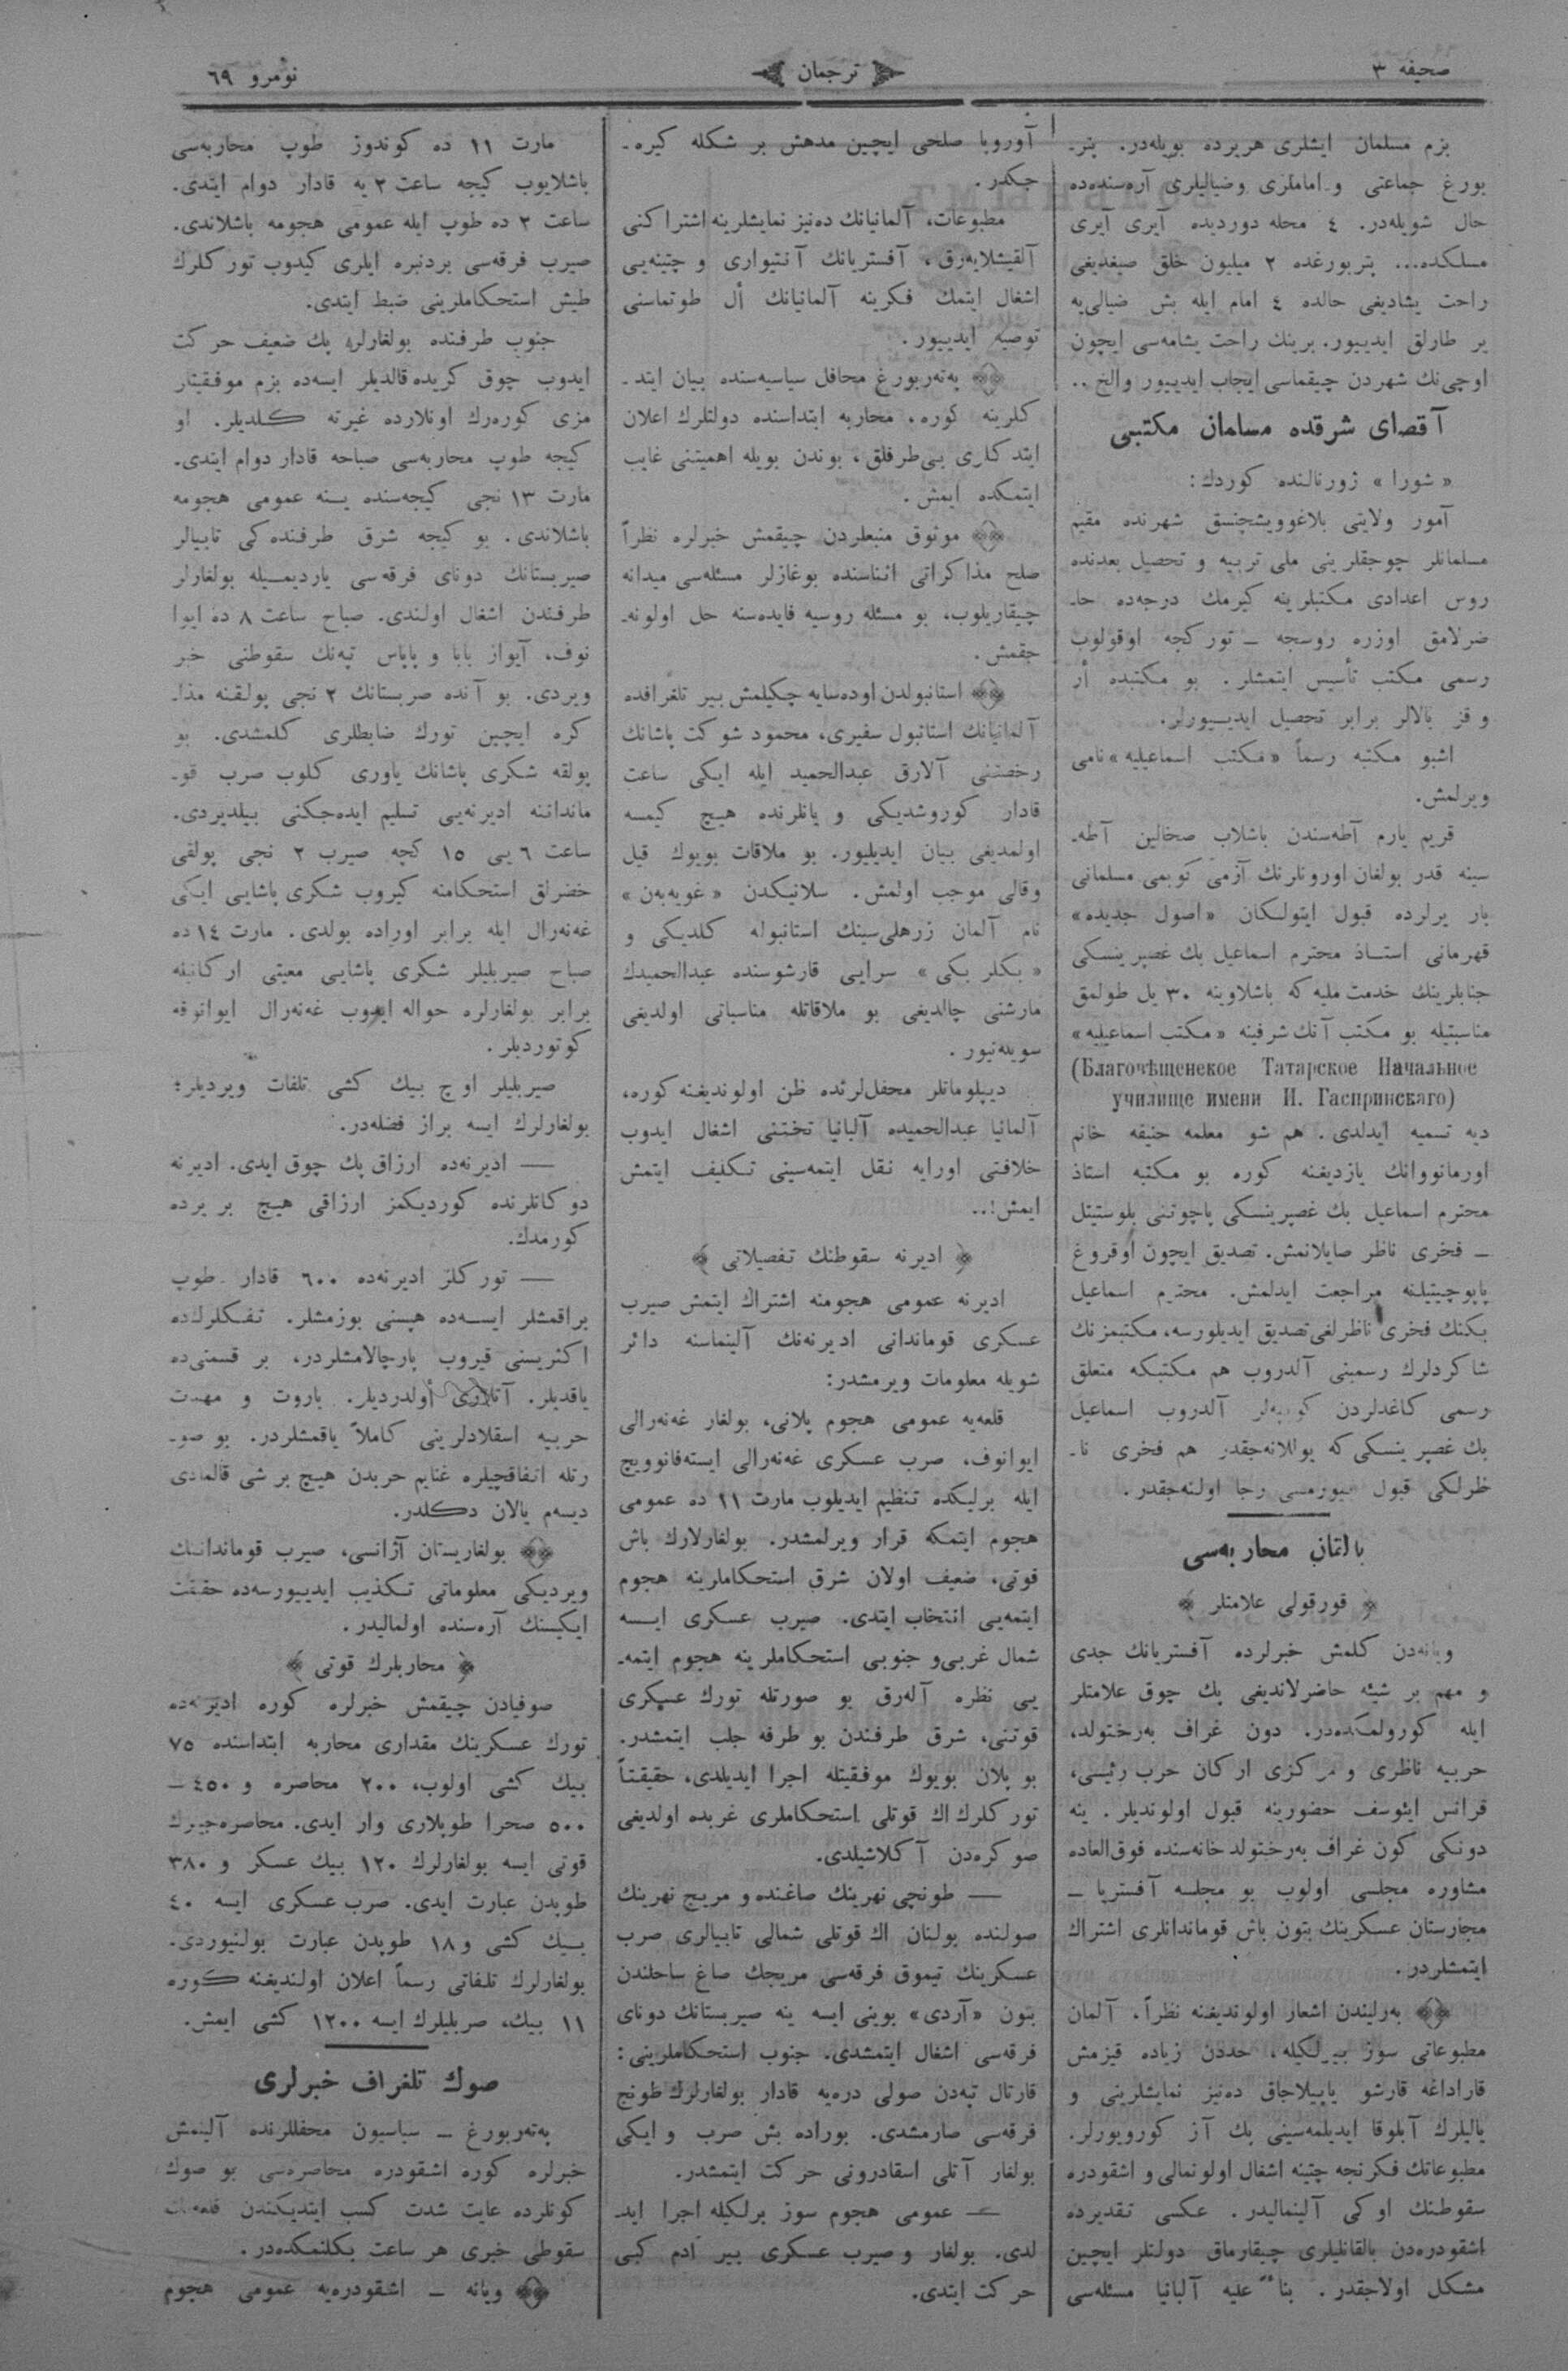 صحیفه ٣
ترجمان
نومرو ٦٩
بزم مسلمان ایشلری هریرده بویله‌در. پتر‌ـ
بورغ جماعتی و اماملری و ضیالیلری آره‌سنده‌ده
حال شویله‌در. ٤ محله دوردیده آیری آیری
مسلکده... پتربورغده ٢ میلیون خلق صیغدیغی
راحت یشادیغی حالده ٤ امام ایله بش ضیالی‌یه
یر طارلق ایدییور. برینك راحت یشامه‌سی ایچون
اوچی‌نك شهردن چیقماسی ایجاب ایدییور والخ ..
آقصای شرقده مسلمان مكتبی
« شورا » ژورنالنده كوردك :
آمور ولایتی بلاغوویشچنسق شهرنده مقیم
مسلمانلر چوجقلرینی ملی تربیه و تحصیل بعدنده
روس اعدادی مكتبلرینه كیرمك درجه‌ده حا‌ـ
ضرلامق اوزره روسجه ــ توركجه اوقولوب
رسمی مكتب تأسیس ایتمشلر. بو مكتبده أر
و قز بالالر برابر تحصیل ایدییورلر.
اشبو مكتبه رسماً « مكتب اسماعیلیه » نامی
ویرلمش.
قریم یارم آطه‌سندن باشلاب صخالین آطه‌ـ
سینه قدر بولغان اورونلرنك آزمی كوبمی مسلمانی
بار یرلرده قبول ایتولكان « اصول جدیده »
قهرمانی استاذ محترم اسماعیل بك غصپرینسكی
جنابلرینك خدمت ملیه كه باشلاوینه ٣٠ یل طولمق
مناسبتیله بو مكتب آنك شرفینه « مكتب اسماعیلیه »
(Благовѣщенское Татарское Начальное
училище имени И. Гаспринскаго)
دیه تسمیه ایدلدی. هم شو معلمه حنیفه خانم
اورمانووانك یازدیغنه كوره بو مكتبه استاذ
محترم اسماعیل بك غصپرینسكی پاچوتنی بلوستیتل
ــ فخری ناظر صایلانمش. تصدیق ایچون اوقروغ
پاپوچیتیلنه مراجعت ایدلمش. محترم اسماعیل
بكنك فخری ناظرلغی تصدیق ایدیلورسه، مكتبمزنك
شاكردلرك رسمینی آلدروب هم مكتبكه متعلق
رسمی كاغدلردن كوپیه‌لر آلدروب اسماعیل
بك غصپرینسكی كه یوللانه‌جقدر هم فخری نا‌ـ
ظرلكی قبول بیورمسی رجا اولنه‌جقدر.
بالقان محاربه‌سی
﴿ قورقولی علامتلر ﴾
ویانه‌دن كلمش خبرلرده آفستریانك جدی
و مهم بر شیئه حاضرلاندیغی پك چوق علامتلر
ایله كورولمكده‌در. دون غراف به‌رختولد،
حربیه ناظری و مركزی اركان حرب رئیسی،
فرانس ایئوسف حضورینه قبول اولوندیلر. ینه
دونكی كون غراف به‌رختولد خانه‌سنده فوق‌العاده
مشاوره مجلسی اولوب بو مجلسه آفستریا ــ
مجارستان عسكرینك بتون باش قوماندانلری اشتراك
ایتمشلردر.
به‌رلیندن اشعار اولوندیغنه نظراً، آلمان
مطبوعاتی سوز بیرلكیله، حددن زیاده قیزمش
قاراداغه قارشو یاپیلاجاق ده‌نیز نمایشلرینی و
یالیلرك آبلوقا ایدیلمه‌سینی پك آز كورویورلر.
مطبوعاتك فكرنجه چتینه اشغال اولونمالی و اشقودره
سقوطنك اوكی آلینمالیدر. عكسی تقدیرده
اشقودره‌دن بالقانلیلری چیقارماق دولتلر ایچین
مشكل اولاجقدر. بناءً علیه آلبانیا مسئله‌سی
آوروپا صلحی ایچین مدهش بر شكله كیره‌ـ
جكدر.
مطبوعات، آلمانیانك ده‌نیز نمایشلرینه اشتراكنی
آلقیشلایه‌رق، آفستریانك آنتیواری و چتینه‌یی
اشغال ایتمك فكرینه آلمانیانك أل طوتماسنی
توصیه ایدییور.
په‌ته‌ربورغ محافل سیاسیه‌سنده بیان ایتد‌ـ
كلرینه كوره، محاربه ابتداسنده دولتلرك اعلان
ایتدكلری بی‌طرفلق، بوندن بویله اهمیتنی غایب
ایتمكده ایمش.
موثوق منبعلردن چیقمش خبرلره نظراً
صلح مذاكراتی اثناسنده بوغازلر مسئله‌سی میدانه
چیقاریلوب، بو مسئله روسیه فایده‌سنه حل اولونه‌ـ
جقمش.
استانبولدن اوده‌سایه چكیلمش بیر تلغرافده
آلمانیانك استانبول سفیری، محمود شوكت پاشانك
رخصتنی آلارق عبدالحمید ایله ایكی ساعت
قادار كوروشدیكی و یانلرنده هیچ كیمسه
اولمدیغی بیان ایدیلیور. بو ملاقات بویوك قیل
وقالی موجب اولمش. سلانیكدن « غویه‌به‌ن »
نام آلمان زرهلی‌سینك استانبوله كلدیكی و
« بكلر بكی » سرایی قارشوسنده عبدالحمیدك
مارشنی چالدیغی بو ملاقاتله مناسباتی اولدیغی
سویله‌نیور.
دیپلوماتلر محفل‌لرنده ظن اولوندیغنه كوره،
آلمانیا عبدالحمیده آلبانیا تختنی اشغال ایدوب
خلافتی اورایه نقل ایتمه‌سینی تكلیف ایتمش
ایمش!..
﴿ ادیرنه سقوطنك تفصیلاتی ﴾
ادیرنه عمومی هجومنه اشتراك ایتمش صیرب
عسكری قوماندانی ادیرنه‌نك آلینماسنه دائر
شویله معلومات ویرمشدر:
قلعه‌یه عمومی هجوم پلانی، بولغار غه‌نه‌رالی
ایوانوف، صرب عسكری غه‌نه‌رالی ایسته‌فانوویچ
ایله برلیكده تنظیم ایدیلوب مارت ١١ ده عمومی
هجوم ایتمكه قرار ویرلمشدر. بولغارلارك باش
قوتی، ضعیف اولان شرق استحكاملرینه هجوم
ایتمه‌یی انتخاب ایتدی. صیرب عسكری ایسه
شمال غربی‌و جنوبی استحكاملرینه هجوم ایتمه‌ـ
یی نظره آله‌رق بو صورتله تورك عسكری
قوتنی، شرق طرفندن بو طرفه جلب ایتمشدر.
بو پلان بویوك موفقیتله اجرا ایدیلدی، حقیقتاً
توركلرك اك قوتلی استحكاملری غربده اولدیغی
صوكره‌دن آكلاشیلدی.
— طونجی نهرینك صاغنده و مریج نهرینك
صولنده بولنان اك قوتلی شمالی تابیالری صرب
عسكرینك تیموق فرقه‌سی مریجك صاغ ساحلندن
بتون « آردی » بوینی ایسه ینه صیربستانك دونای
فرقه‌سی اشغال ایتمشدی. جنوب استحكاملرینی:
قارتال تپه‌دن صولی دره‌یه قادار بولغارلرك طونج
فرقه‌سی صارمشدی. بوراده بش صرب و ایكی
بولغار آتلی اسقادرونی حركت ایتمشدر.
— عمومی هجوم سوز برلكیله اجرا اید‌ـ
لدی. بولغار و صیرب عسكری بیر آدم كبی
حركت ایتدی.
مارت ١١ ده كوندوز طوپ محاربه‌سی
باشلایوب كیجه ساعت ٢ یه قادار دوام ایتدی.
ساعت ٣ ده طوپ ایله عمومی هجومه باشلاندی.
صیرب فرقه‌سی بردنبره ایلری كیدوب توركلرك
طیش استحكاملرینی ضبط ایتدی.
جنوب طرفنده بولغارلر پك ضعیف حركت
ایدوب چوق كریده قالدیلر ایسه‌ده بزم موفقیتلر
مزی كوره‌رك اونلارده غیرته كلدیلر. او
كیجه طوپ محاربه‌سی صباحه قادار دوام ایتدی.
مارت ١٣ نجی كیجه‌سنده ینه عمومی هجومه
باشلاندی. بو كیجه شرق طرفنده‌كی تابیالر
صیربستانك دونای فرقه‌سی یاردیمیله بولغارلر
طرفندن اشغال اولندی. صباح ساعت ٨ ده ایوا
نوف، آیواز بابا و پاپاس تپه‌نك سقوطنی خبر
ویردی. بو آنده صربستانك ٢ نجی پولقنه مذا‌ـ
كره ایچین تورك ضابطلری كلمشدی. بو
پولقه شكری پاشانك یاوری كلوب صرب قو‌ـ
ماندانه ادیرنه‌یی تسلیم ایده‌جكنی بیلدیردی.
ساعت ٦ یی ١٥ كچه صیرب ٢ نجی پولقی
خضرلق استحكامنه كیروب شكری پاشایی ایكی
غه‌نه‌رال ایله برابر اوراده بولدی. مارت ١٤ ده
صباح صیربلیلر شكری پاشایی معیتی اركانیله
برابر بولغارلره حواله ایدوب غه‌نه‌رال ایوانوفه
كوتوردیلر.
صیربلیلر اوچ بیك كشی تلفات ویردیلر؛
بولغارلرك ایسه براز فضله‌در.
— ادیرنه‌ده ارزاق پك چوق ایدی. ادیرنه
دوكانلرنده كوردیكمز ارزاقی هیچ بر یرده
كورمدك.
— توركلر ادیرنه‌ده ٦٠٠ قادار طوپ
براقمشلر ایسه‌ده هپسنی بوزمشلر. تفكلرك‌ده
اكثریسنی قیروب پارچالامشلردر، بر قسمنی‌ده
یاقدیلر. آتلاری أولدردیلر. باروت و مهمت
حربیه اسقلادلرینی كاملاً یاقمشلردر. بو صو‌ـ
رتله اتفاقچیلره غنایم حربدن هیچ بر شی قالمادی
دیسه‌م یالان دكلدر.
بولغاریستان آژانسی، صیرب قوماندانك
ویردیكی معلوماتی تكذیب ایدییورسه‌ده حقیقت
ایكیسنك آره‌سنده اولمالیدر.
﴿ محاربلرك قوتی ﴾
صوفیادن چیقمش خبرلره كوره ادیرنه‌ده
تورك عسكرینك مقداری محاربه ابتداسنده ٧٥
بیك كشی اولوب، ٢٠٠ محاصره و ٤٥٠ ــ
٥٠٠ صحرا طوپلاری وار ایدی. محاصره‌جیلرك
قوتی ایسه بولغارلرك ١٢٠ بیك عسكر و ٣٨٠
طوپدن عبارت ایدی. صرب عسكری ایسه ٤٠
بیك كشی و ١٨ طوپدن عبارت بولنیوردی.
بولغارلرك تلفاتی رسماً اعلان اولندیغنه كوره
١١ بیك، صربلیلرك ایسه ١٢٠٠ كشی ایمش.
صوك تلغراف خبرلری
په‌ته‌ربورغ ــ سیاسیون محفللرنده آلینمش
خبرلره كوره اشقودره محاصره‌سی بو صوك
كونلرده غایت شدت كسب ایتدیكندن قلعه‌نك
سقوطی خبری هر ساعت بكلنمكده‌در.
ویانه ــ اشقودره‌یه عمومی هجوم